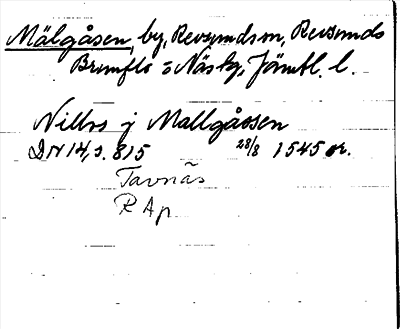 Mälgåsen, by, Revsunds sn, Revsunds
Brunflo o Näs tg, Jämtl. l.
Nillss j Mallgåssen
DN 14, s. 815 28/8 1545 or.
Tavnäs
RAp